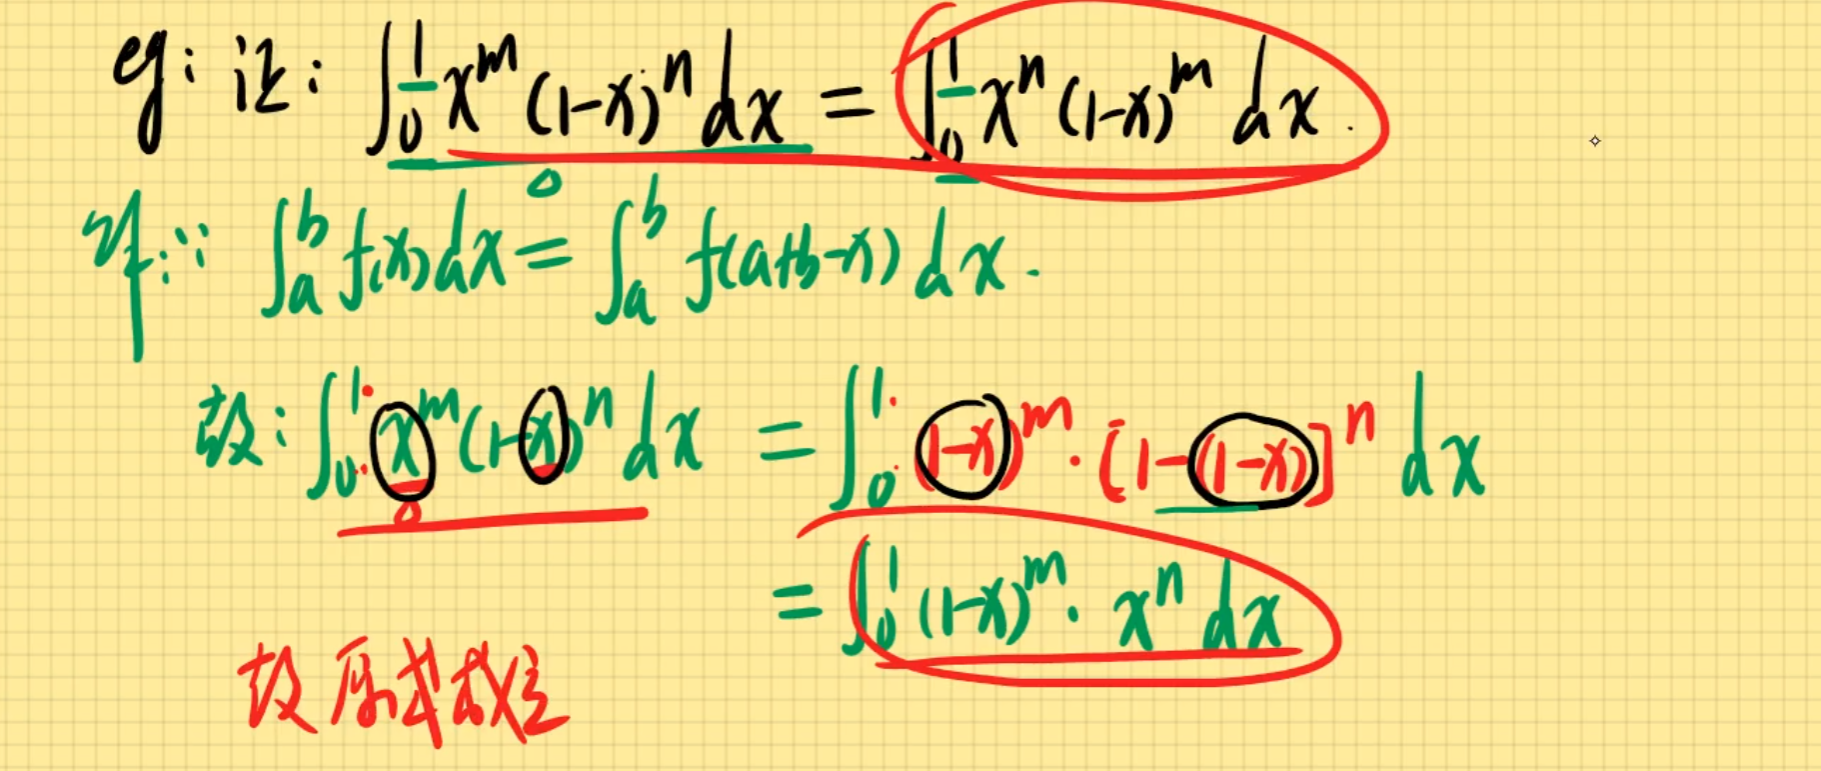 eg: 证: ∫₀¹ xᵐ(1-x)ⁿdx = ∫₀¹ xⁿ(1-x)ᵐ dx.
∵ ∫ₐᵇ f(x)dx = ∫ₐᵇ f(a+b-x) dx.
故: ∫₀¹ xᵐ(1-x)ⁿ dx = ∫₀¹ (1-x)ᵐ · [1-(1-x)]ⁿ dx
= ∫₀¹ (1-x)ᵐ · xⁿ dx
故原式成立